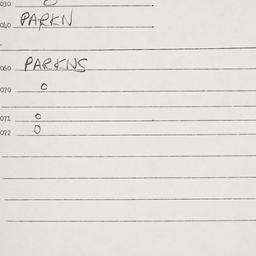 030
040 PARKN
060 PARKNS
070 0
071 0
072 0